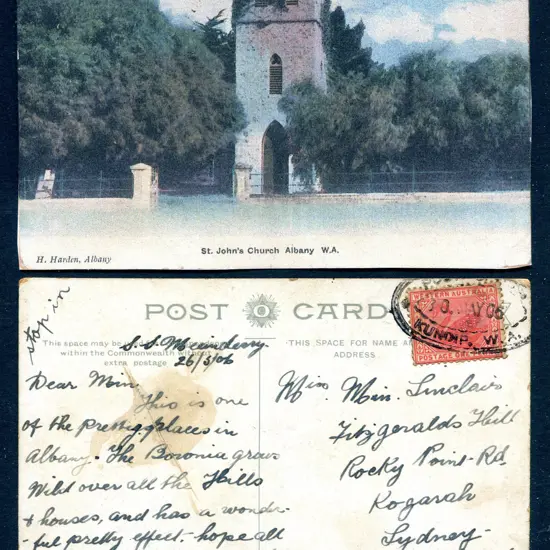 St. John's Church Albany W.A.
H. Harden, Albany
stop in
POST CARD
This space may be
within the Commonwealth without
extra postage
THIS SPACE FOR NAME
ADDRESS.
WESTERN AUSTRALIA
26/5/06
Dear Min,
This is one
of the prettiest places in
Albany. The Boronia grows
Wild over all the Hills
& houses, and has a wonder-
ful pretty effect,- hope all
Miss Min. Sinclair
Fitzgeralds Hill
Rocky Point Rd
Kogarah
Sydney-